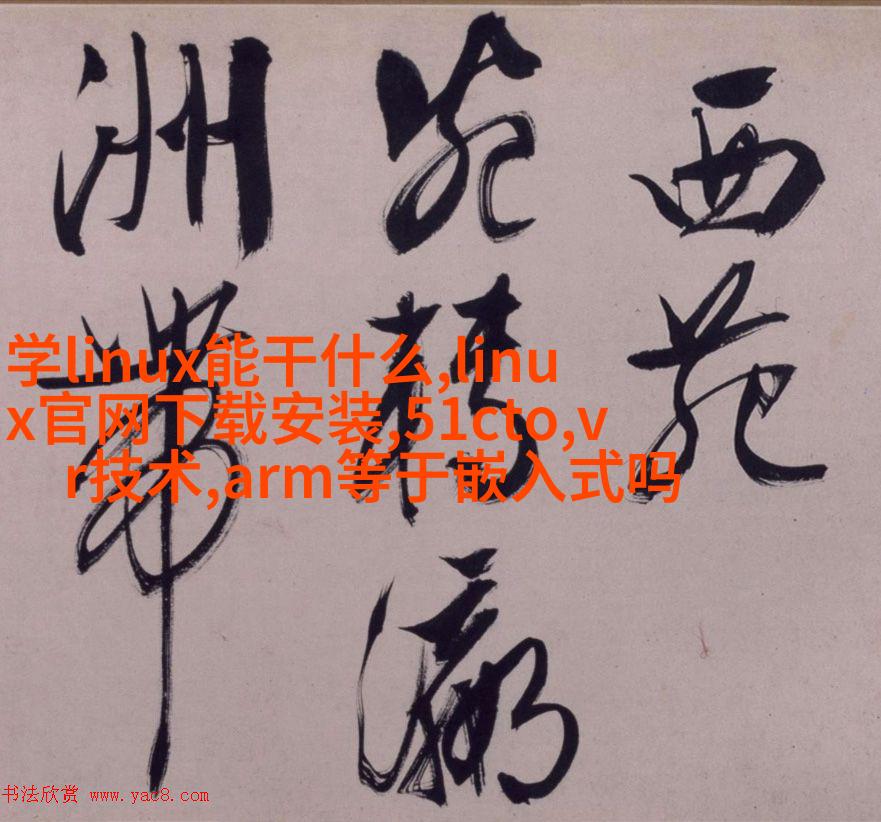 西苑
瀛
洲帶
学linux能干什么,linu
x官网下载安装,51cto,v
r技术,arm等于嵌入式吗
书法欣赏 www.yac8.com